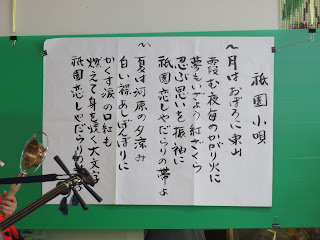 祇園小唄
〽月はおぼろに東山
霞む夜毎のかがり火に
夢もいざよう紅ざくら
忍ぶ思いを振袖に
祇園恋しやだらりの帯よ
〽夏は河原の夕涼み
白い襟あしぼんぼりに
かくす涙の口紅も
燃えて身を焼く大文字
祇園恋しやだらりの